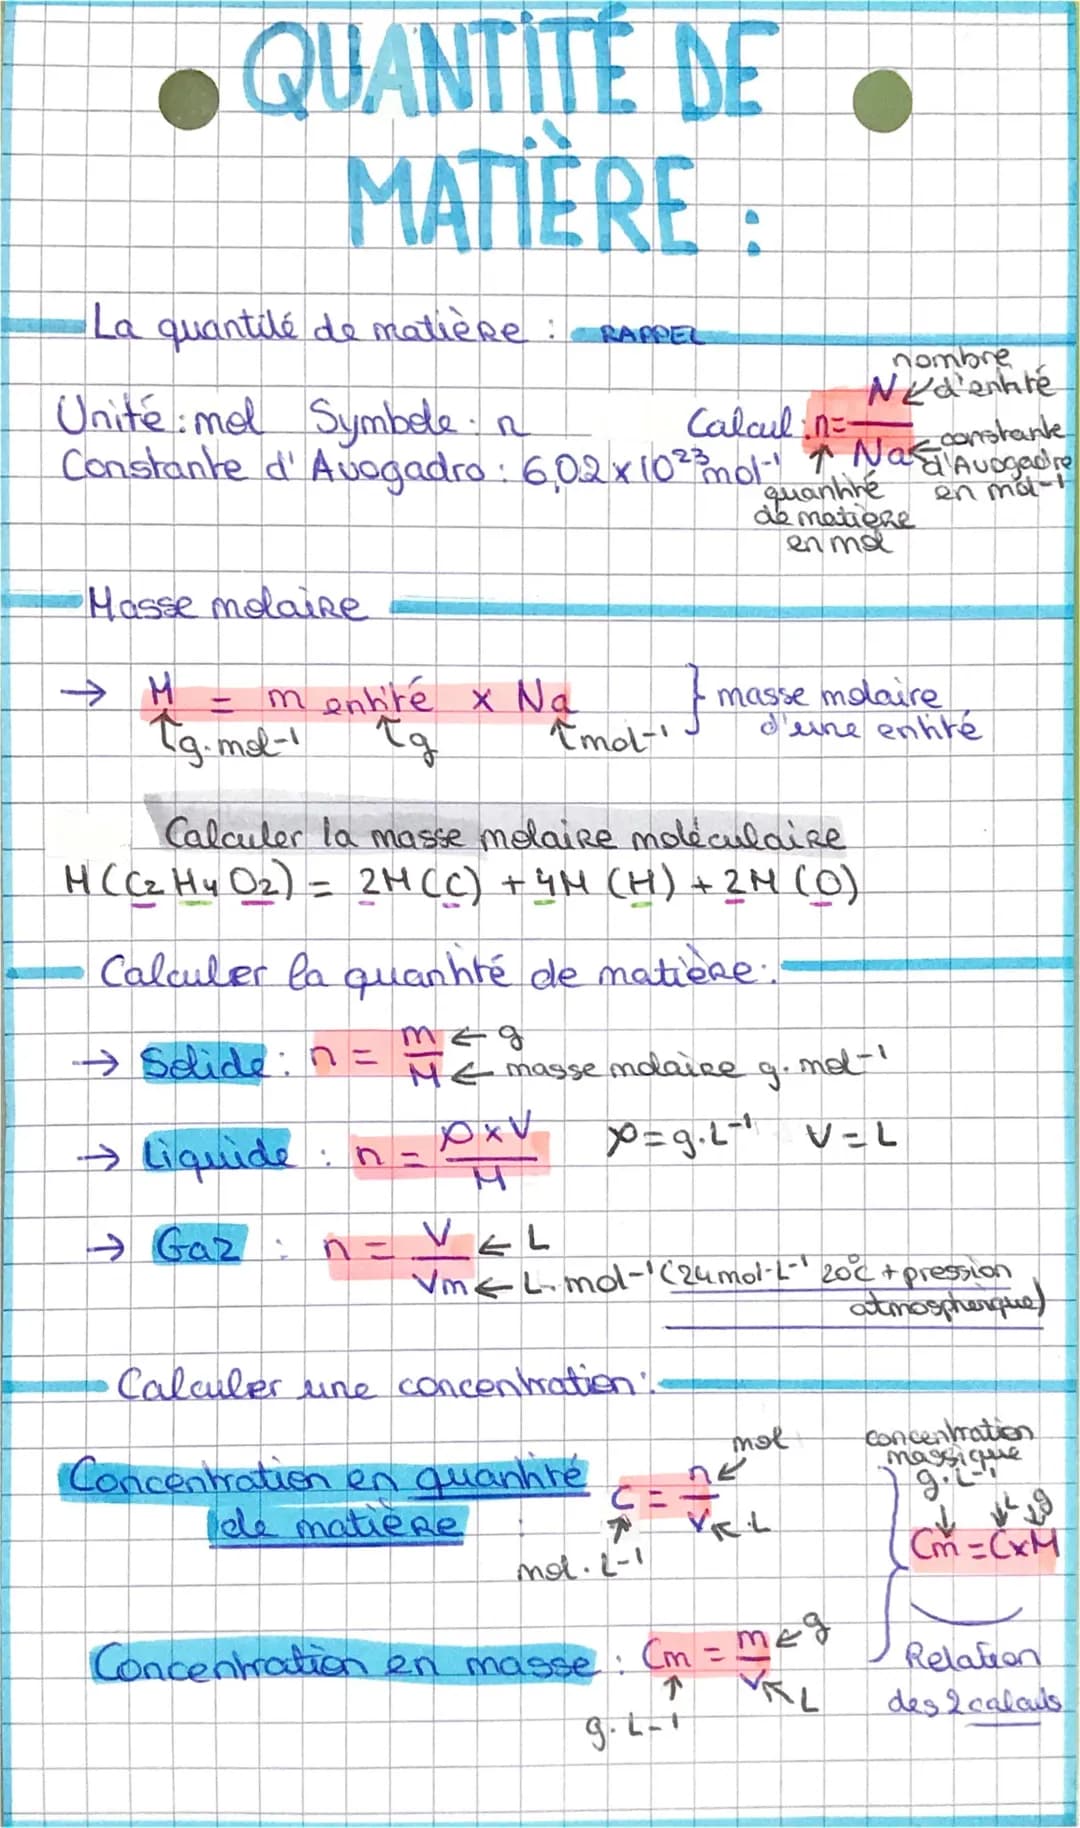 QUANTITÉ DE
MATIÈRE :
La quantité de matière : RAPPEL
Unité : mol Symbole : n Calcul : n = N / Na
nombre d'entité
constante d'Avogadro en mol-1
quantité de matière en mol
Constante d'Avogadro : 6,02 x 10²³ mol⁻¹
Masse molaire
→ M = m entité x Na } masse molaire d'une entité
↑ g.mol-1 ↑ g ↑ mol-1
Calculer la masse molaire moléculaire
M (C₂ H₄ O₂) = 2M (C) + 4M (H) + 2M (O)
Calculer la quantité de matière :
→ Solide : n = m / M
← g
← masse molaire g.mol-1
→ Liquide : n = ρ x V / M ρ = g.L-1 V = L
→ Gaz : n = V / Vm
← L
← L.mol-1 (24 mol.L-1 20°C + pression atmosphérique)
Calculer une concentration :
Concentration en quantité de matière : C = n / V
mol
L
mol.L-1
concentration massique g.L-1
L g
Cm = C x M
Relation des 2 calculs
Concentration en masse : Cm = m / V
← g
L
g.L-1